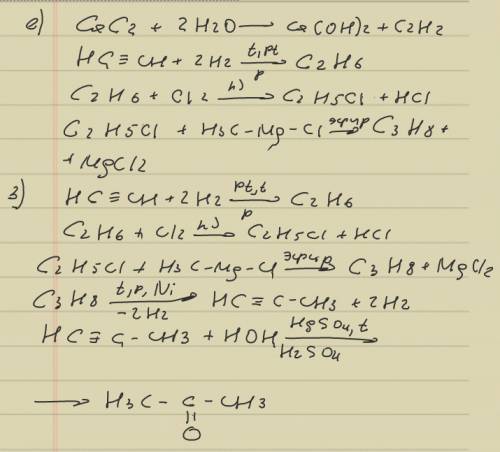 е) CaC2 + 2H2O ⟶ Ca(OH)2 + C2H2
HC≡CH + 2H2 t,pt⟶p C2H6
C2H6 + Cl2 hν⟶ C2H5Cl + HCl
C2H5Cl + H3C-Mg-Cl эфир⟶ C3H8 +
+ MgCl2
з) HC≡CH + 2H2 pt,t⟶p C2H6
C2H6 + Cl2 hν⟶ C2H5Cl + HCl
C2H5Cl + H3C-Mg-Cl эфир⟶ C3H8 + MgCl2
C3H8 t,p,Ni⟶-2H2 HC≡C-CH3 + 2H2
HC≡C-CH3 + HOH HgSO4,t⟶H2SO4
⟶ H3C-C-CH3
||
O